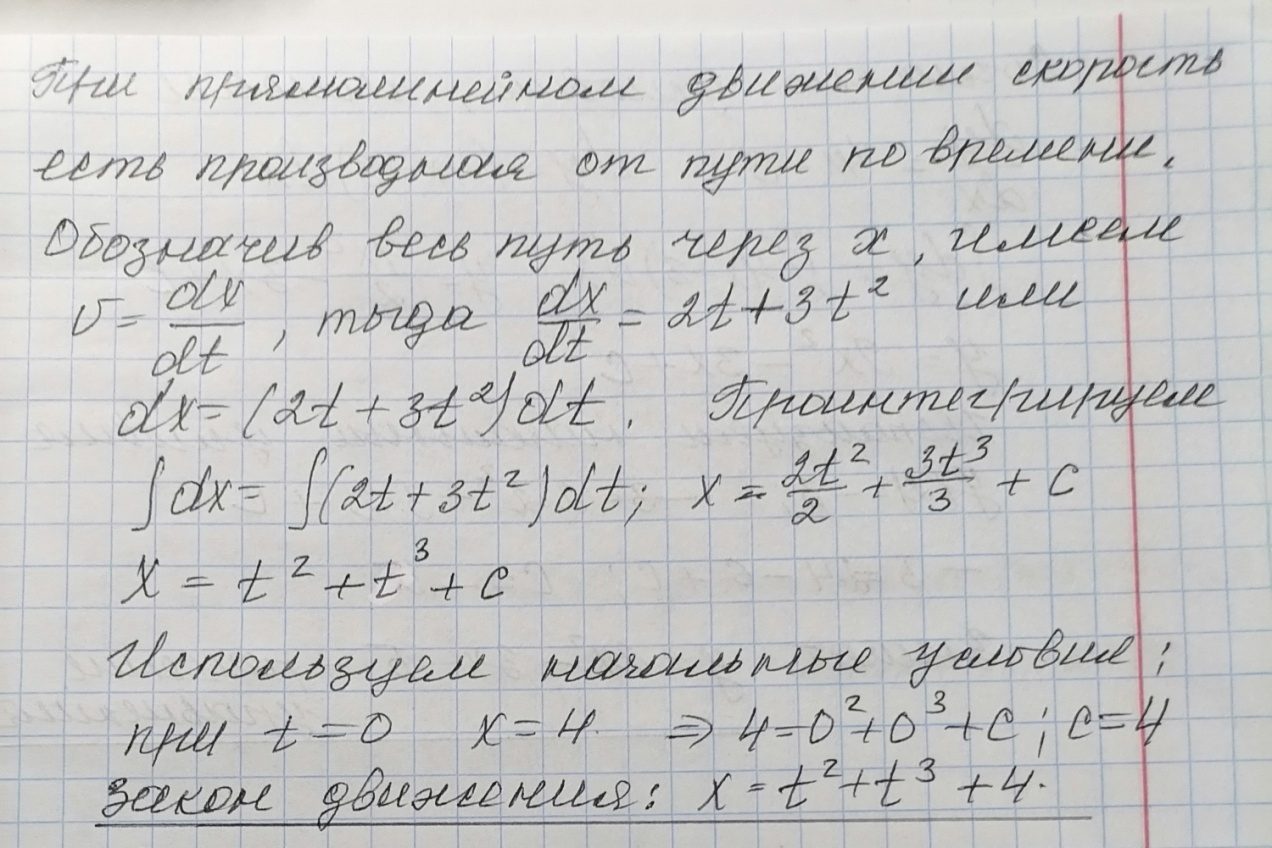 При прямолинейном движении скорость
есть производная от пути по времени.
Обозначив весь путь через x, имеем
v = dx/dt, тогда dx/dt = 2t + 3t² или
dx = (2t + 3t²)dt. Проинтегрируем
∫dx = ∫(2t + 3t²)dt; x = 2t²/2 + 3t³/3 + c
x = t² + t³ + c
Используем начальные условие:
при t = 0 x = 4. ⇒ 4 = 0² + 0³ + c; c = 4
закон движения: x = t² + t³ + 4.